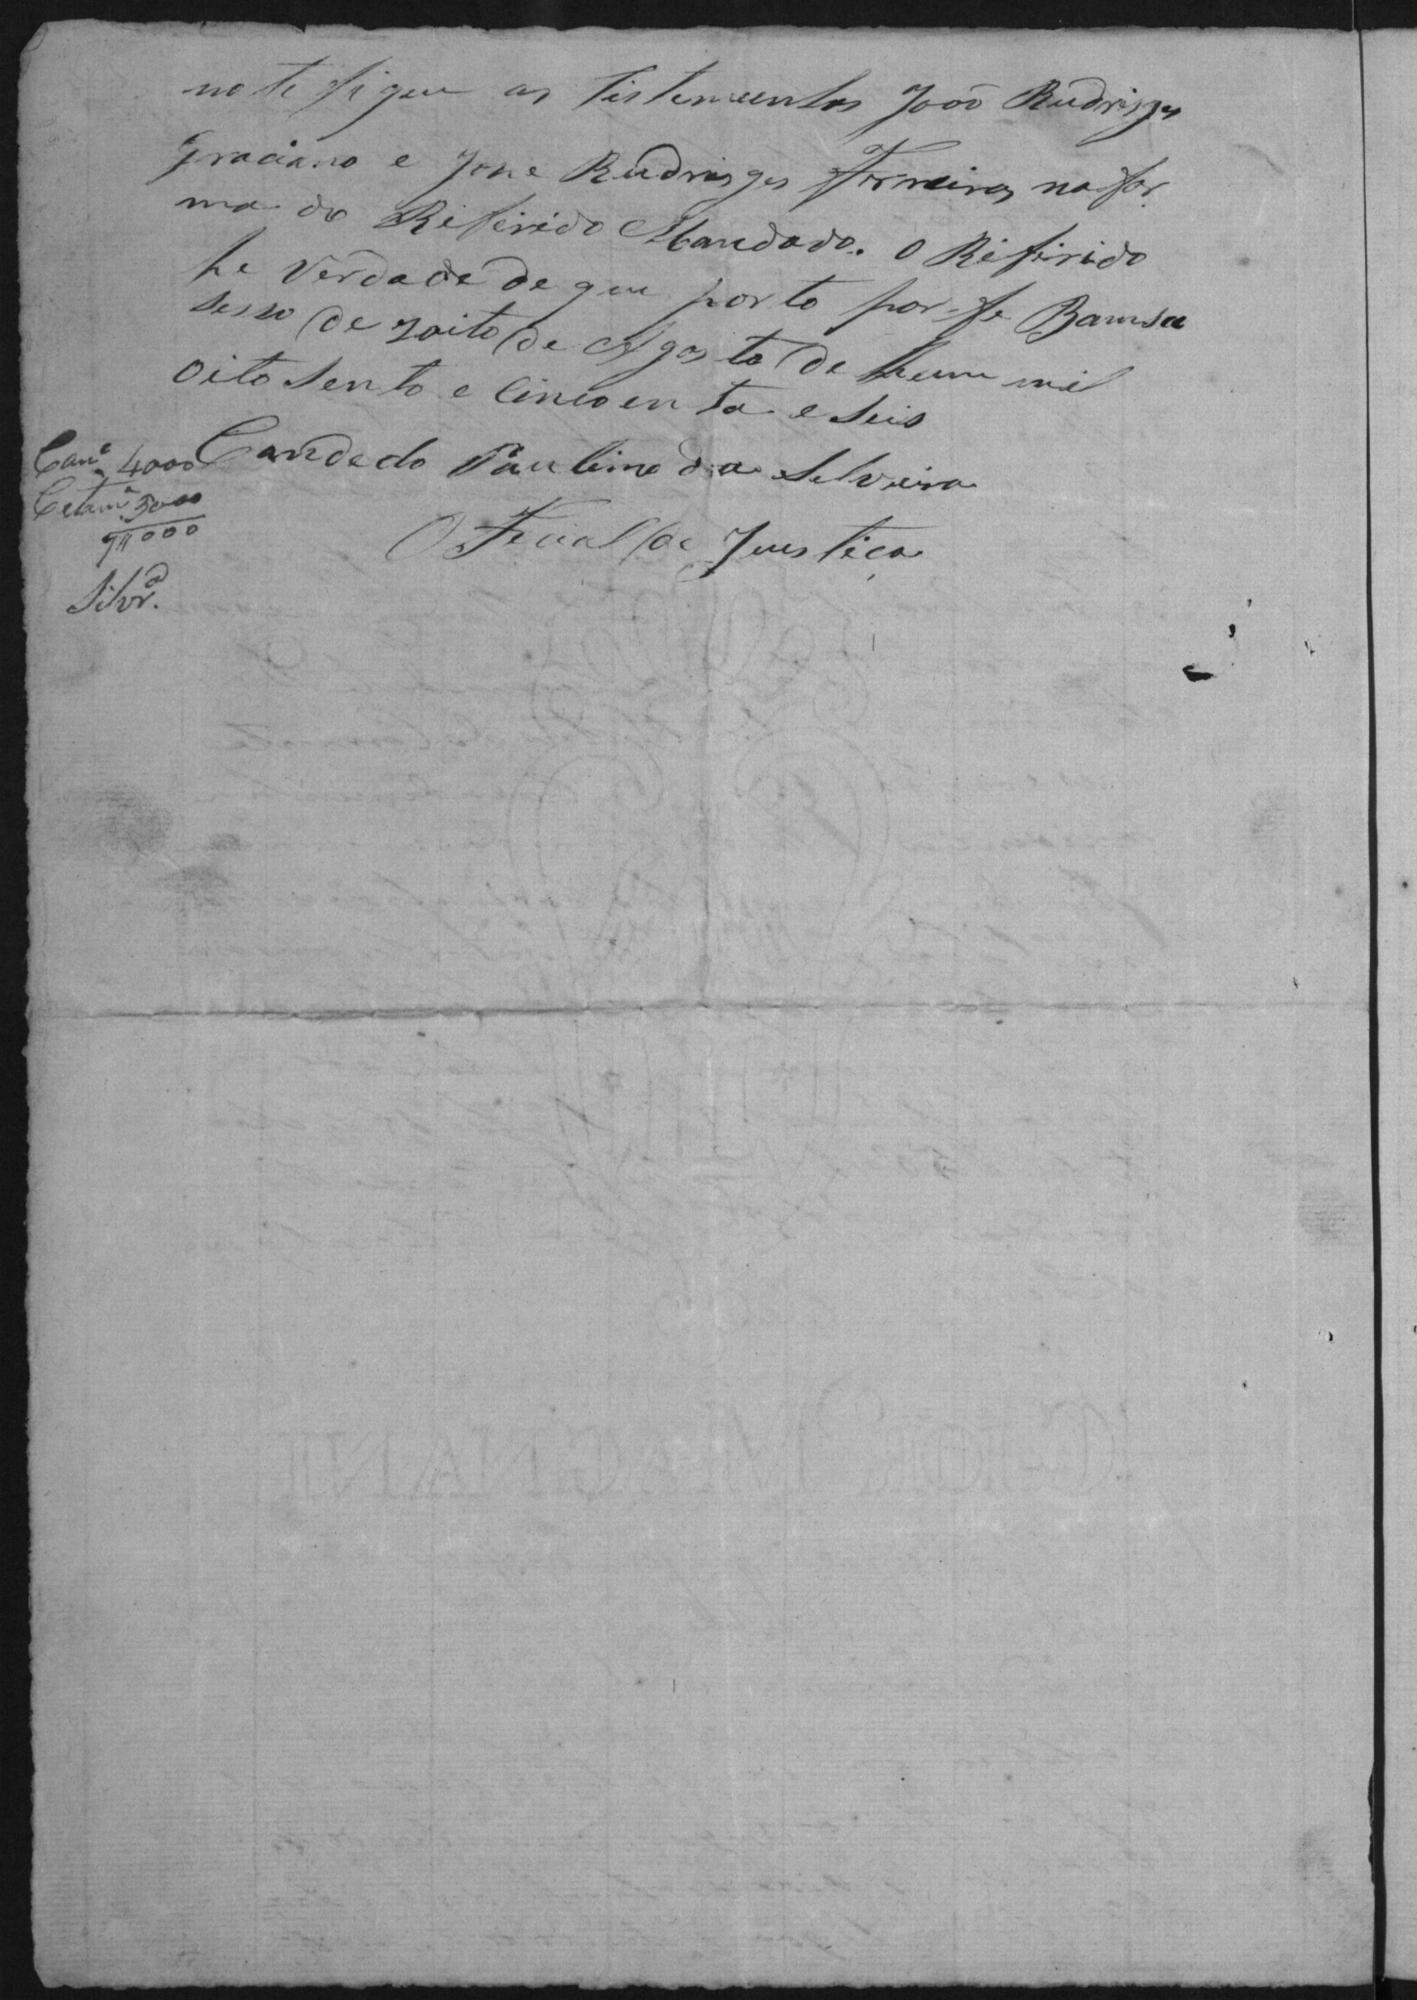 notefiquei as testemunhas João Rudrigues
Graciano e Jose Rudrigues Ferreira, na for
ma do Referido Mandado. O Referido
he verdade de que porto por fe
de zoito de Agosto de hum mil
oito sento e cincoenta e seis
Candedo Paulino da Silveira
Oficial de Justiça
Can.ª 4000
5000
9#000
Silvr.ª
GIOR MAGNANI